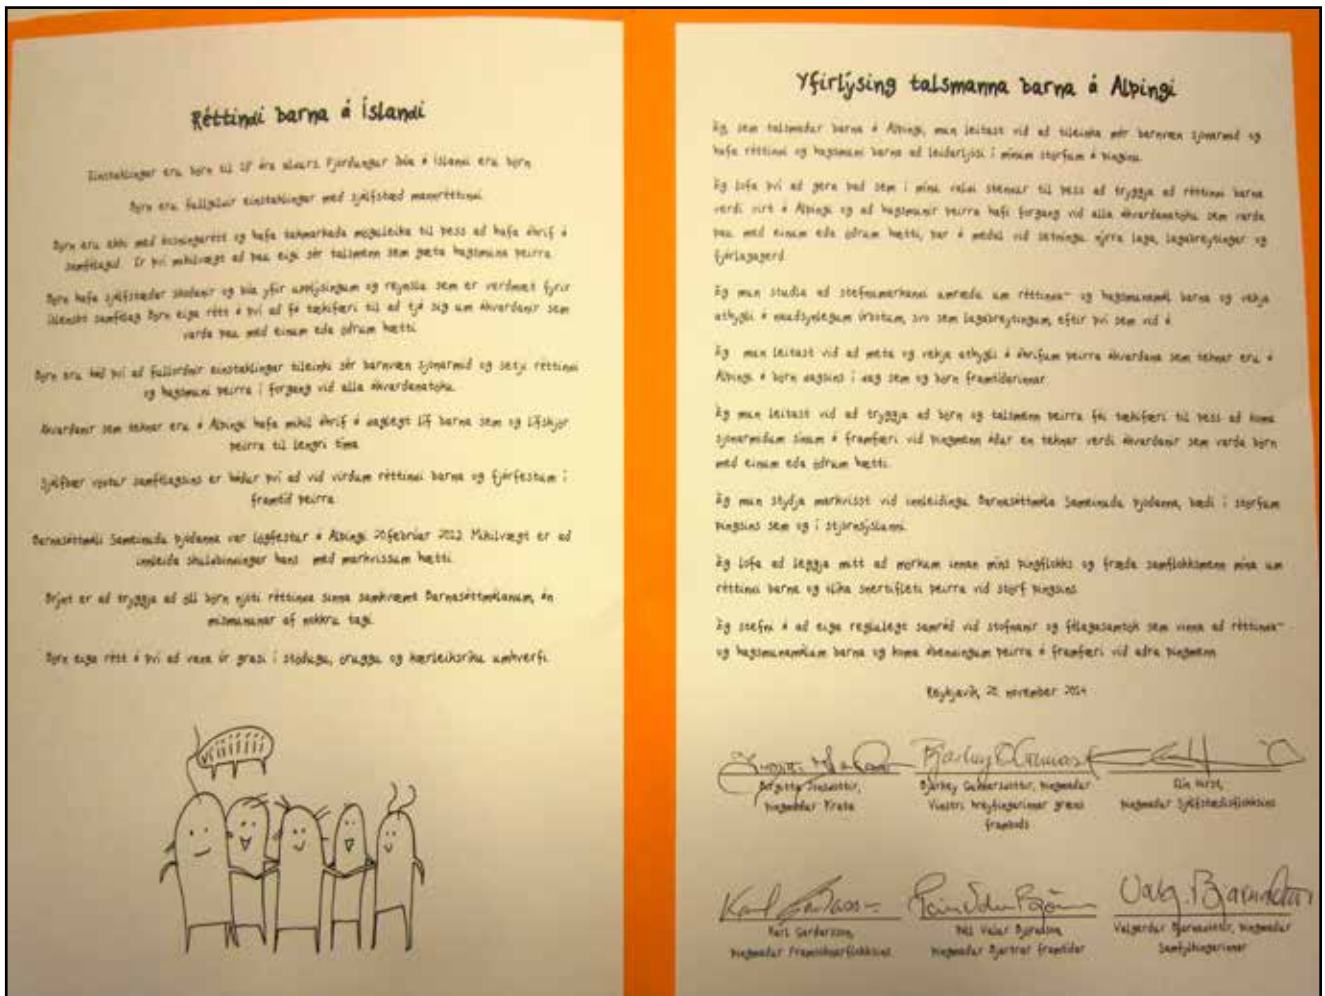 Réttindi barna á Íslandi
Einstaklingar eru börn til 18 ára aldurs. Fjórðungur íbúa á Íslandi eru börn
Börn eru fullgildir einstaklingar með sjálfstæð mannréttindi.
Börn eru ekki með kosningarétt og hafa takmarkaða möguleika til þess að hafa áhrif á
samfélagið. Er því mikilvægt að þau eigi sér talsmenn sem gæta hagsmuna þeirra
Börn hafa sjálfstæðar skoðanir og búa yfir upplýsingum og reynslu sem er verðmæt fyrir
íslenskt samfélag Börn eiga rétt á því að fá tækifæri til að tjá sig um ákvarðanir sem
varða þau með einum eða öðrum hætti
Börn eru háð því að fullorðnir einstaklingar tileinki sér barnvæn sjónarmið og setji réttindi
og hagsmuni þeirra í forgang við alla ákvarðanatöku.
Ákvarðanir sem teknar eru á Alþingi hafa mikil áhrif á daglegt líf barna sem og lífskjör
þeirra til lengri tíma
Sjálfbær vöxtur samfélagsins er háður því að við virðum réttindi barna og fjárfestum í
framtíð þeirra
Barnasáttmáli Sameinuðu þjóðanna var lögfestur á Alþingi 20.febrúar 2013. Mikilvægt er að
innleiða skuldbindingar hans með markvissum hætti.
Brýnt er að tryggja að öll börn njóti réttinda sinna samkvæmt Barnasáttmálanum, án
mismununar af nokkru tagi.
Börn eiga rétt á því að vaxa úr grasi í stöðugu, öruggu og kærleiksríku umhverfi.
Yfirlýsing talsmanna barna á Alþingi
Ég, sem talsmaður barna á Alþingi, mun leitast við að tileinka mér barnvæn sjónarmið og
hafa réttindi og hagsmuni barna að leiðarljósi í mínum störfum á þinginu.
Ég lofa því að gera það sem í mínu valdi stendur til þess að tryggja að réttindi barna
verði virt á Alþingi og að hagsmunir þeirra hafi forgang við alla ákvarðanatöku sem varða
þau með einum eða öðrum hætti, þar á meðal við setningu nýrra laga, lagabreytingar og
fjárlagagerð.
Ég mun stuðla að stefnumarkandi umræðu um réttinda- og hagsmunamál barna og vekja
athygli á nauðsynlegum úrbótum, svo sem lagabreytingum, eftir því sem við á
Ég mun leitast við að meta og vekja athygli á áhrifum þeirra ákvarðana sem teknar eru á
Alþingi á börn dagsins í dag sem og börn framtíðarinnar.
Ég mun leitast við að tryggja að börn og talsmenn þeirra fái tækifæri til þess að koma
sjónarmiðum sínum á framfæri við þingmenn áður en teknar verði ákvarðanir sem varða börn
með einum eða öðrum hætti.
Ég mun styðja markvisst við innleiðingu Barnasáttmála Sameinuðu þjóðanna, bæði í störfum
þingsins sem og í stjórnsýslunni.
Ég lofa að leggja mitt af mörkum innan míns þingflokks og fræða samflokksmenn mína um
réttindi barna og ólíka snertifleti þeirra við störf þingsins.
Ég stefni á að eiga reglulegt samráð við stofnanir og félagasamtök sem vinna að réttinda-
og hagsmunamálum barna og koma ábendingum þeirra á framfæri við aðra þingmenn.
Reykjavík, 20. nóvember 2014
Birgitta Jónsdóttir,
þingmaður Pírata
Bjarkey Gunnarsdóttir, þingmaður
Vinstri hreyfingarinnar græns
framboðs
Elín Hirst,
þingmaður Sjálfstæðisflokksins
Karl Garðarsson,
þingmaður Framsóknarflokksins
Páll Valur Björnsson,
þingmaður Bjartrar framtíðar
Valg. Bjarnadóttir
Valgerður Bjarnadóttir, þingmaður
Samfylkingarinnar